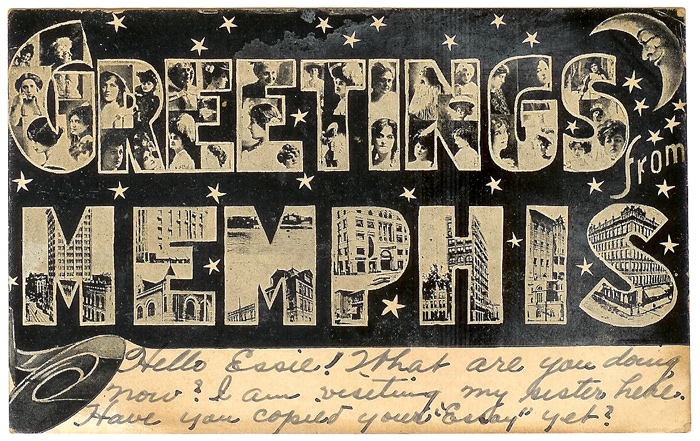 GREETINGS
from
MEMPHIS
Hello Essie! What are you doing
now? I am visiting my sister here.
Have you copied your "Essay" yet?